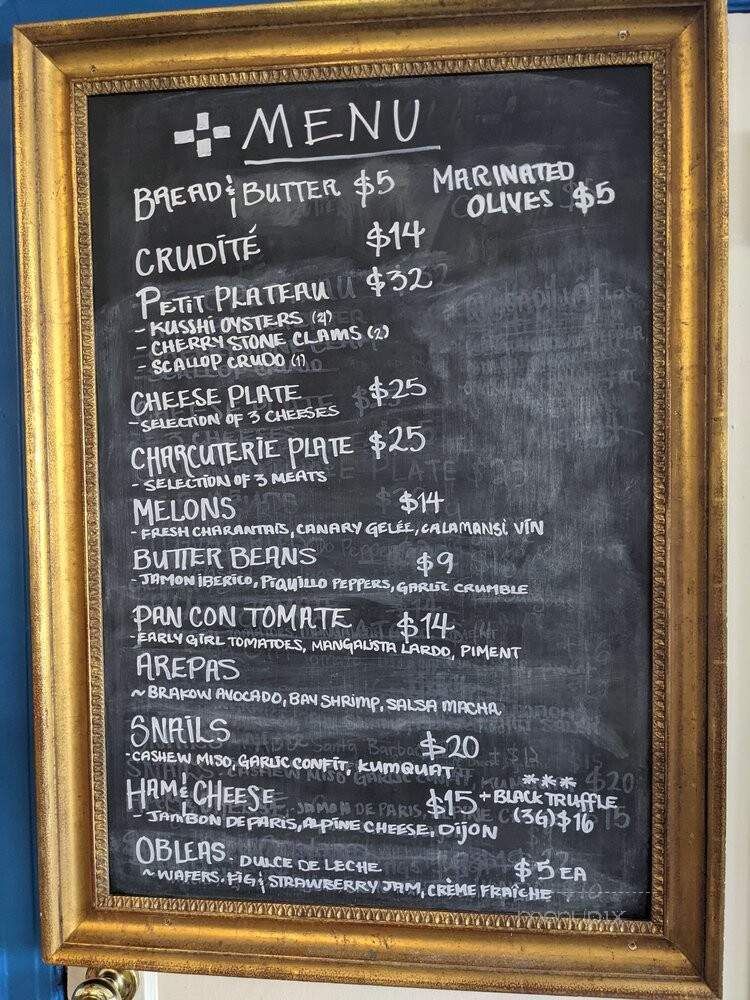 MENU
BREAD & BUTTER $5
MARINATED
OLIVES $5
CRUDITÉ $14
PETIT PLATEAU $32
- KUSSHI OYSTERS (4)
- CHERRYSTONE CLAMS (2)
- SCALLOP CRUDO (1)
CHEESE PLATE $25
- SELECTION OF 3 CHEESES
CHARCUTERIE PLATE $25
- SELECTION OF 3 MEATS
MELONS $14
- FRESH CHARANTAIS, CANARY GELÉE, CALAMANSI VIN
BUTTER BEANS $9
- JAMON IBERICO, PIQUILLO PEPPERS, GARLIC CRUMBLE
PAN CON TOMATE $14
- EARLY GIRL TOMATOES, MANGALISTA LARDO, PIMENT
AREPAS
~ BRAKOW AVOCADO, BAY SHRIMP, SALSA MACHA
SNAILS $20
- CASHEW MISO, GARLIC CONFIT, KUMQUAT
HAM & CHEESE $15 + BLACK TRUFFLE
***
(3G) $16
- JAMBON DE PARIS, ALPINE CHEESE, DIJON
OBLEAS - DULCE DE LECHE $5 EA
~ WAFERS. FIG & STRAWBERRY JAM, CRÈME FRAÎCHE
menupix